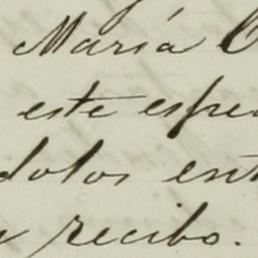 María
este espe
dolos ent
recibo.